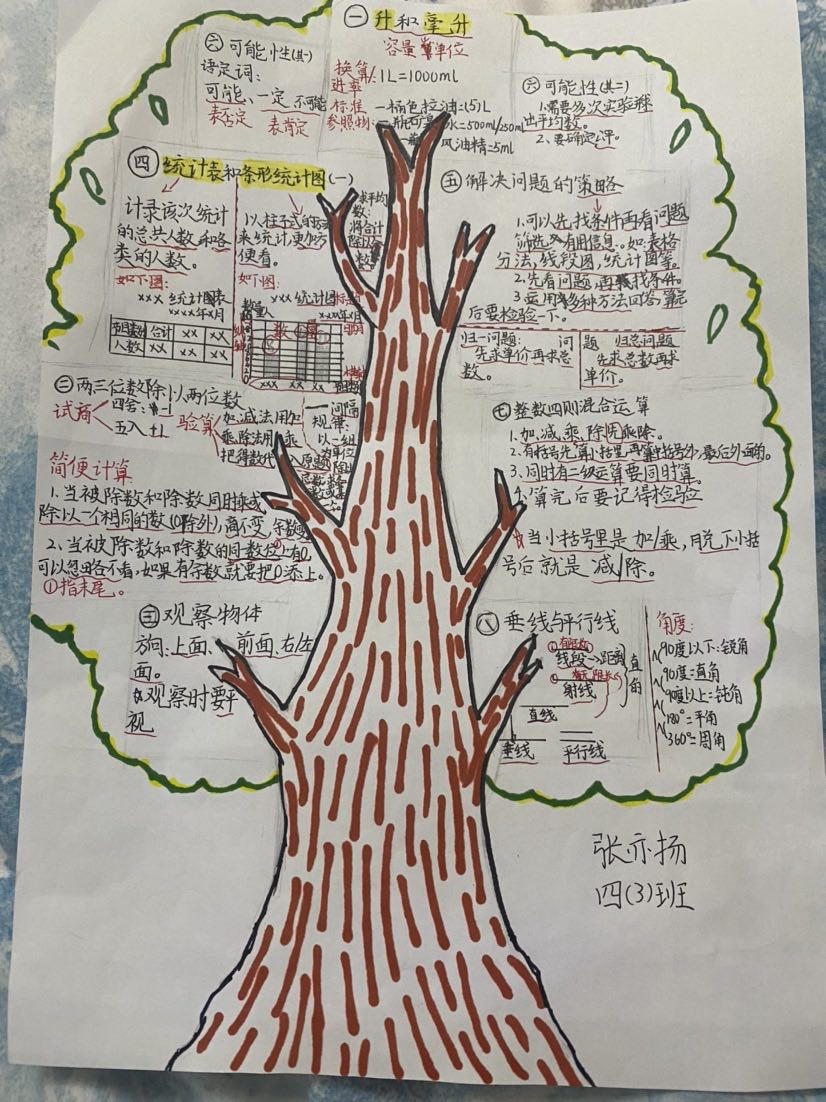 一 升和毫升
容量单位
换算/进率 1L=1000ml
标准参照物: 一桶色拉油=(5)L
=500ml/250ml
风油精=5ml
六 可能性(其一)
语定词:
可能、一定、不可能
表否定 表肯定
六 可能性(其二)
1.需要多次实验
出平均数。
2、要确定公平。
四 统计表和条形统计图(一)
计录该次统计
的总共人数和各
类的人数。
如下图:
xxx 统计图表
xxxx年x月
合计 xx xx
人数 xx xx xx
以柱子式的
来统计,更加方
便看。
如下图:
xxx 统计图
xxxx年x月
数量
人
xxx xxx xxx
求平均
数:
将合计
除以
数。
五 解决问题的策略
1.可以先找条件再看问题
筛选有用信息。如:表格
分法,线段图,统计图等。
2.先看问题,再找条件。
3.运用多种方法回答,算完
后要检验一下。
归一问题:
先求单价再求总
数。
归总问题
先求总数再求
单价。
二 两三位数除以两位数
试商 四舍:-1
五入 +1
验算 加.减法用加
乘.除法用乘
把得数代入原题
间隔
规律:
以一组
为单位
简便计算
1.当被除数和除数同时乘或
除以一个相同的数(0除外),商不变,余数变
2、当被除数和除数的同数位上有0,
可以忽略不看,如果有余数就要把0添上。
①指末尾。
七 整数四则混合运算
1.加.减.乘.除先乘除。
2.有括号先算小括里,再算中括号外,最后外面的。
3.同时有二级运算要同时算。
4.算完后要记得检验
当小括号里是加/乘,脱下小括
号后就是减/除。
三 观察物体
方向:上面、前面、右/左
面。
观察时要平
视
八 垂线与平行线
线段→距离
射线
直线
直的
垂线 平行线
角度:
90度以下:锐角
90度=直角
90度以上=钝角
180°=平角
360°=周角
张亦扬
四(3)班